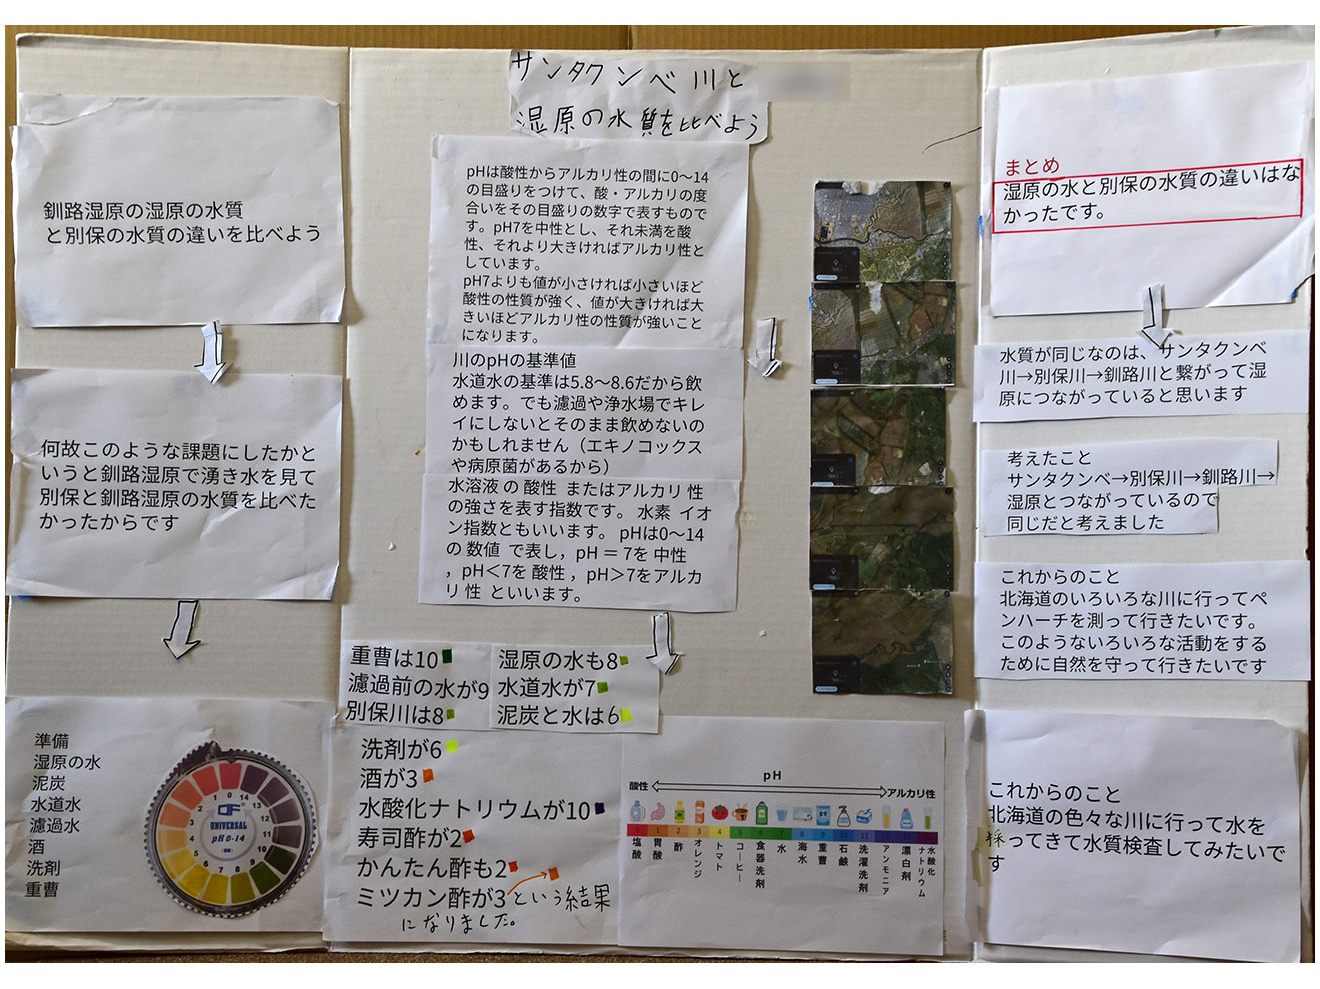 サンタクンベ川と
湿原の水質を比べよう
釧路湿原の湿原の水質
と別保の水質の違いを比べよう
何故このような課題にしたかと
いうと釧路湿原で湧き水を見て
別保と釧路湿原の水質を比べた
かったからです
準備
湿原の水
泥炭
水道水
濾過水
酒
洗剤
重曹
UNIVERSAL
pH 0-14
0
14
13
12
11
10
9
8
7
6
5
4
3
2
1
pHは酸性からアルカリ性の間に0〜14
の目盛りをつけて、酸・アルカリの度
合いをその目盛りの数字で表すもので
す。pH7を中性とし、それ未満を酸
性、それより大きければアルカリ性と
しています。
pH7よりも値が小さければ小さいほど
酸性の性質が強く、値が大きければ大
きいほどアルカリ性の性質が強いこと
になります。
川のpHの基準値
水道水の基準は5.8〜8.6だから飲
めます。でも濾過や浄水場でキレ
イにしないとそのまま飲めないの
かもしれません（エキノコックス
や病原菌があるから）
水溶液 の 酸性 またはアルカリ 性
の強さを表す指数です。 水素 イオ
ン指数ともいいます。 pHは0〜14
の 数値 で表し，pH ＝ 7を 中性
，pH＜7を 酸性，pH＞7をアルカ
リ 性 といいます。
重曹は10
濾過前の水が9
別保川は8
湿原の水も8
水道水が7
泥炭と水は6
洗剤が6
酒が3
水酸化ナトリウムが10
寿司酢が2
かんたん酢も2
ミツカン酢が3という結果
になりました。
pH
酸性
アルカリ性
0 1 2 3 4 5 6 7 8 9 10 11
塩酸
胃酸
酢
オレンジ
トマト
コーヒー
食器洗剤
水
海水
重曹
石鹸
洗濯洗剤
アンモニア
漂白剤
水酸化ナトリウム
まとめ
湿原の水と別保の水質の違いはな
かったです。
水質が同じなのは、サンタクンベ
川→別保川→釧路川と繋がって湿
原につながっていると思います
考えたこと
サンタクンベ→別保川→釧路川→
湿原とつながっているので
同じだと考えました
これからのこと
北海道のいろいろな川に行ってペ
ンハーチを測って行きたいです。
このようないろいろな活動をする
ために自然を守って行きたいです
これからのこと
北海道の色々な川に行って水を
採ってきて水質検査してみたいで
す